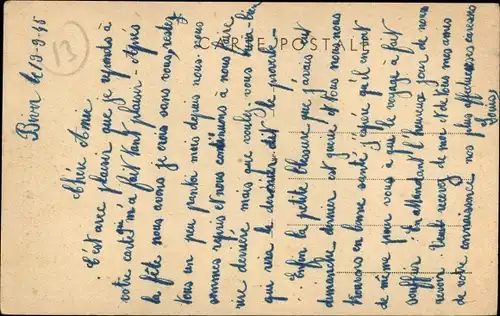 13
CARTE POSTALE
Biviers le 19-9-45
Chère Amie
C'est avec plaisir que je réponds à
votre carte qui m'a fait tant plaisir - Après
la fête nous avons je vous sans vous, restez
tous un peu planta mais depuis nous nous
sommes repris et nous continuons à nous faire
rire derrière mais que voulez-vous
qui rira le dernier dit le proverbe -
Enfin la petite blessure que j'avais fait
dimanche dernier est guérie et tous nous nous
trouvons en bonne santé j'espère qu'il en est
de même pour vous à que le voyage à fait
souffrir. En attendant l'heureux jour de vous
revoir veuillez recevoir de moi et de tous mes amis
de votre connaissance nos plus affectueuses caresses
Louis